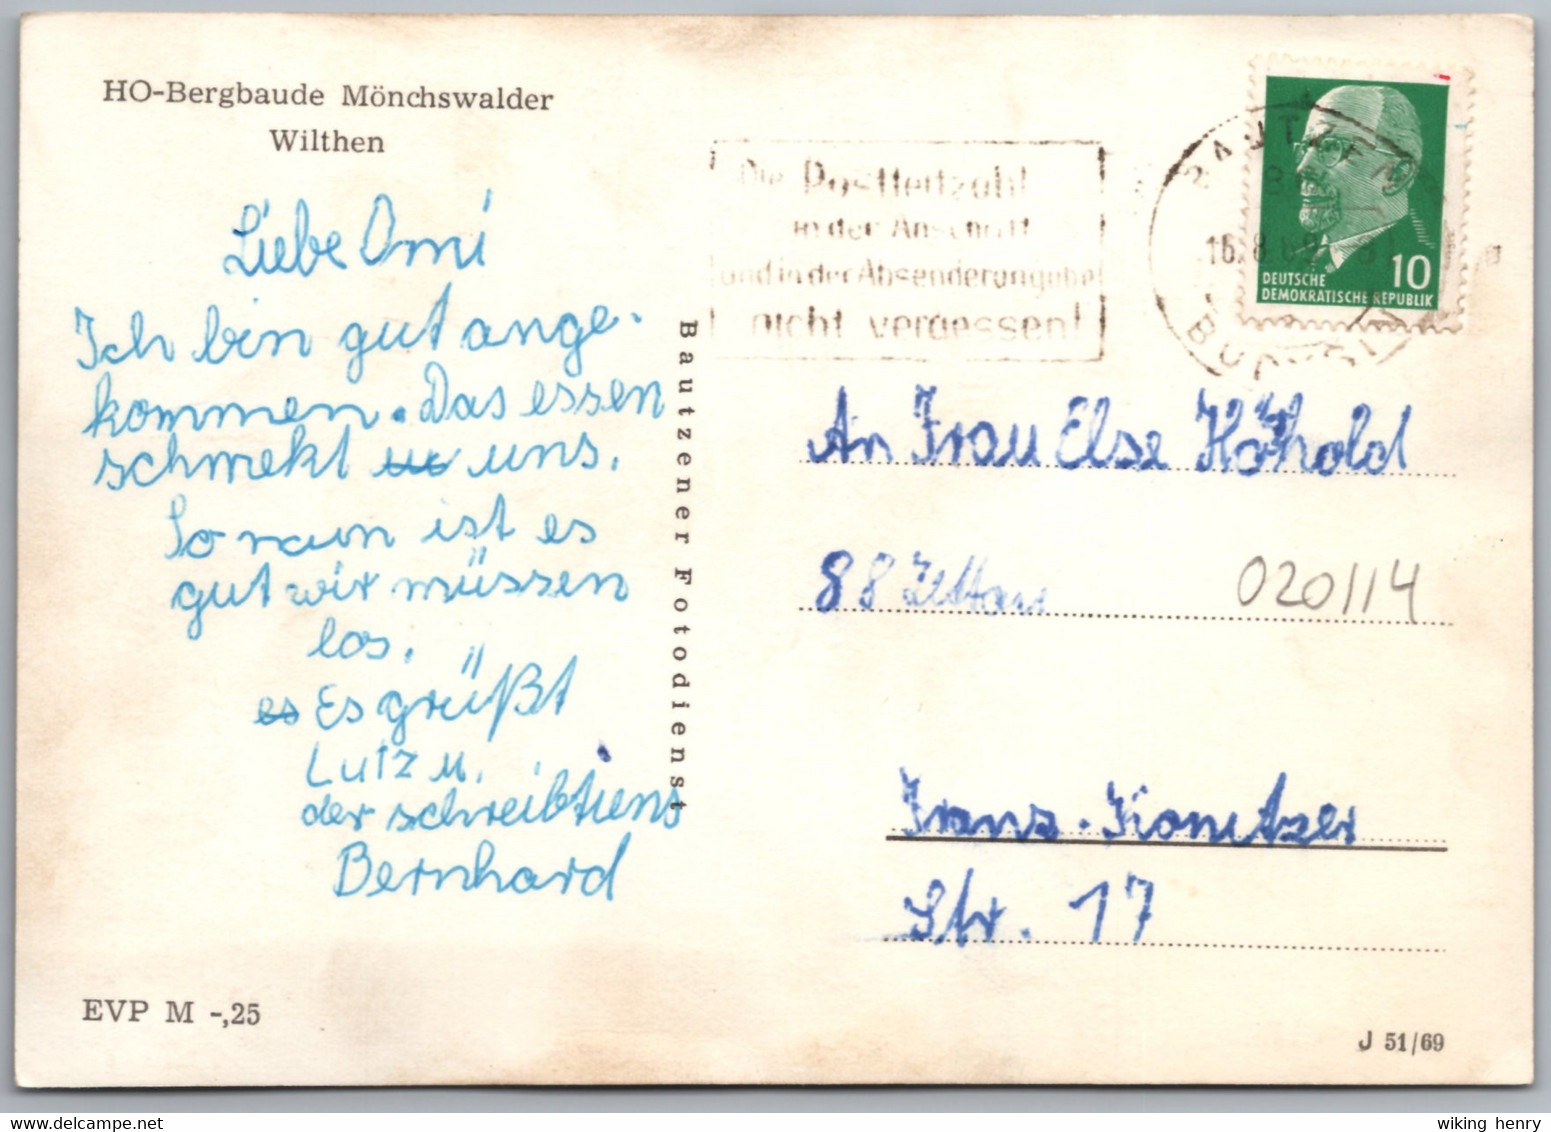 HO-Bergbaude Mönchswalder
Wilthen
Liebe Omi
Ich bin gut ange-
kommen. Das essen
schmekt uns.
So nun ist es
gut wir müssen
los.
es Es grüßt
Lutz u.
der schreibtiens
Bernhard
EVP M -,25
Bautzener Fotodienst
Die Postleitzahl
in der Anschrift
und in der Absenderangabe
nicht vergessen!
BAUTZEN
16.8.69
BUDYŠIN
DEUTSCHE
DEMOKRATISCHE REPUBLIK
10
An Frau Else
88 Zittau
020114
Franz-Konitzer
Str. 17
J 51/69
wiking henry